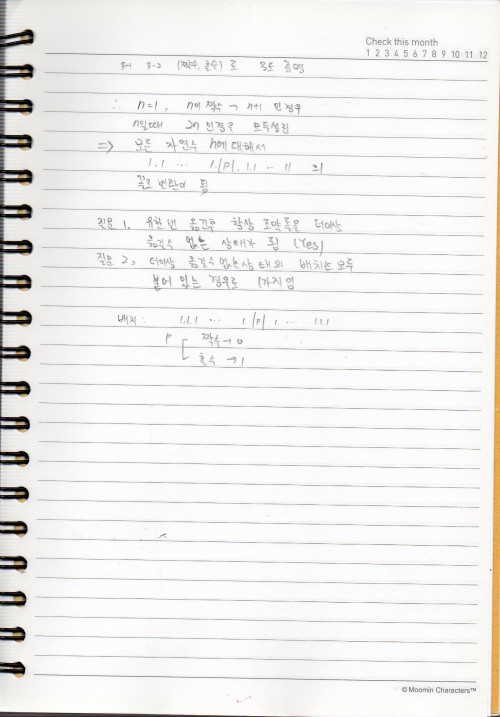 Check this month
1 2 3 4 5 6 7 8 9 10 11 12
3-1. 3-2 (짝수, 홀수) 로 모두 증명
∴ n=1, n이 짝수 → n+1 인 경우
n일때 2n 인경우 모두성립
⇒ 모든 자연수 n에 대해서
1.1 ... 1./P/. 1.1 ... 11 의
꼴로 변환이 됨
질문 1. 유한번 옮긴후 항상 조약돌을 더이상
옮길수 없는 상태가 됨 (Yes)
질문 2, 더이상 옮길수없는 상태의 배치는 모두
붙어 있는 경우로 1가지임
배치: 1.1.1 ... 1./P/ 1 ... 1.1.1
P 짝수→0
홀수→1
© Moomin Characters™